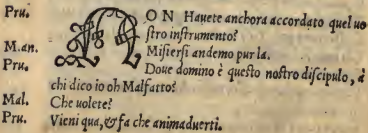 Pru. NON Hauete anchora accordato quel uo
stro instrumento?
M.an. Misiersi andemo pur la.
Pru. Doue domino è questo nostro discipulo, à
chi dico io oh Malfatto?
Mal. Che uolete?
Pru. Vieni qua, & fa che animaduerti.